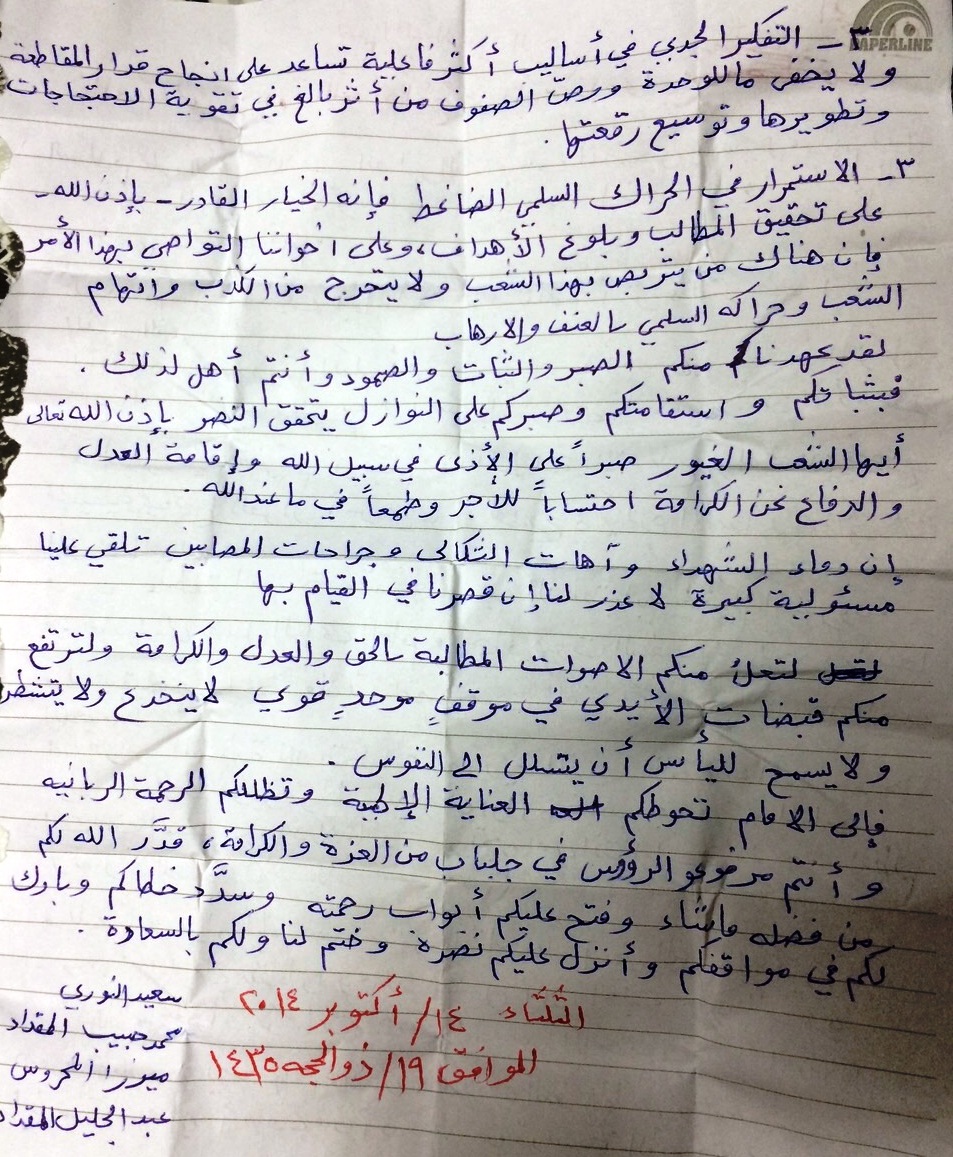 PAPERLINE
٣- التفكير الجدي في أساليب أكثر فاعلية تساعد على إنجاح قرار المقاطعة
ولا يخفى ما للوحدة ورص الصفوف من أثر بالغ في تقوية الاحتجاجات
وتطويرها وتوسيع رقعتها.
٣- الاستمرار في الحراك السلمي الضاغط فإنه الخيار القادر - بإذن الله -
على تحقيق المطالب وبلوغ الأهداف، وعلى أخواننا التواصي بهذا الأمر
فإن هناك من يتربص بهذا الشعب ولا يتحرج من الكذب واتهام
الشعب وحراكه السلمي بالعنف والارهاب
لقد عهدنا منكم الصبر والثبات والصمود وأنتم أهل لذلك.
فبثباتكم واستقامتكم وصبركم على النوازل يتحقق النصر بإذن الله تعالى
أيها الشعب الغيور صبراً على الأذى في سبيل الله وإقامة العدل
والدفاع عن الكرامة احتساباً للأجر وطمعاً في ما عند الله.
إن دماء الشهداء وآهات الثكالى وجراحات المصابين تلقي علينا
مسئولية كبيرة لا عذر لنا إن قصرنا في القيام بها
لتعل منكم الاصوات المطالبة بالحق والعدل والكرامة ولترتفع
منكم قبضات الأيدي في موقفٍ موحدٍ قوي لا ينخدع ولا يتشطر
ولا يسمح لليأس أن يتسلل الى النفوس.
فإلى الامام تحوطكم العناية الإلهية وتظللكم الرحمة الربانيه
وأنتم مرفوعو الرؤوس في جلباب من العزة والكرامة، قدَّر الله لكم
من فضله ماشاء وفتح عليكم أبواب رحمته وسدَّد خطاكم وبارك
لكم في مواقفكم وأنزل عليكم نصره وختم لنا ولكم بالسعادة.
الثلثاء ١٤/أكتوبر ٢٠١٤
الموافق ١٩/ذو الحجه ١٤٣٥
سعيد النوري
محمد حبيب المقداد
ميرزا المحروس
عبد الجليل المقداد